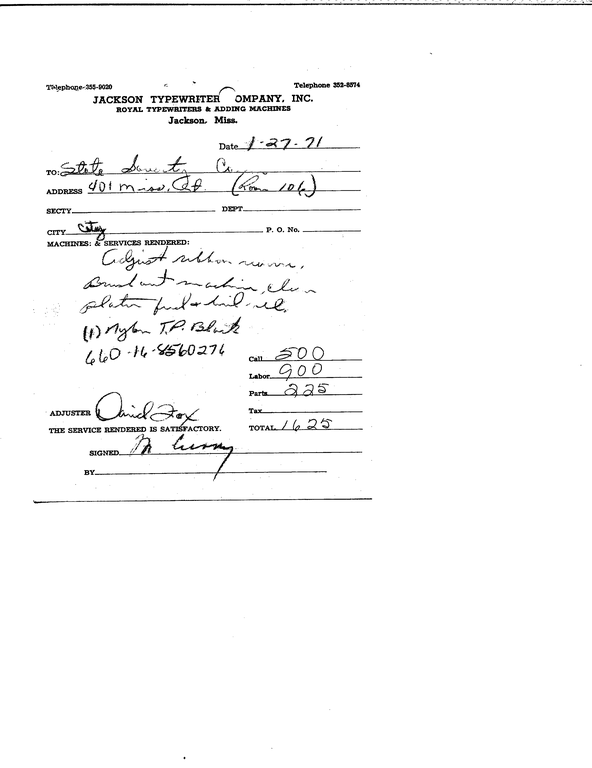 Telephone-355-9020 Telephone 352-8574
JACKSON TYPEWRITER OMPANY, INC.
ROYAL TYPEWRITERS & ADDING MACHINES
Jackson, Miss.
Date 1-27-71
TO: State
ADDRESS 401 Miss. (Room 106)
SECTY. DEPT.
CITY City P. O. No.
MACHINES: & SERVICES RENDERED:
Adjust ribbon
machine, clean
platen feed
(1) Nylon T.P. Black
660-16-8560276
Call 500
Labor 900
Parts 225
ADJUSTER David Fox Tax
THE SERVICE RENDERED IS SATISFACTORY. TOTAL 1625
SIGNED M
BY